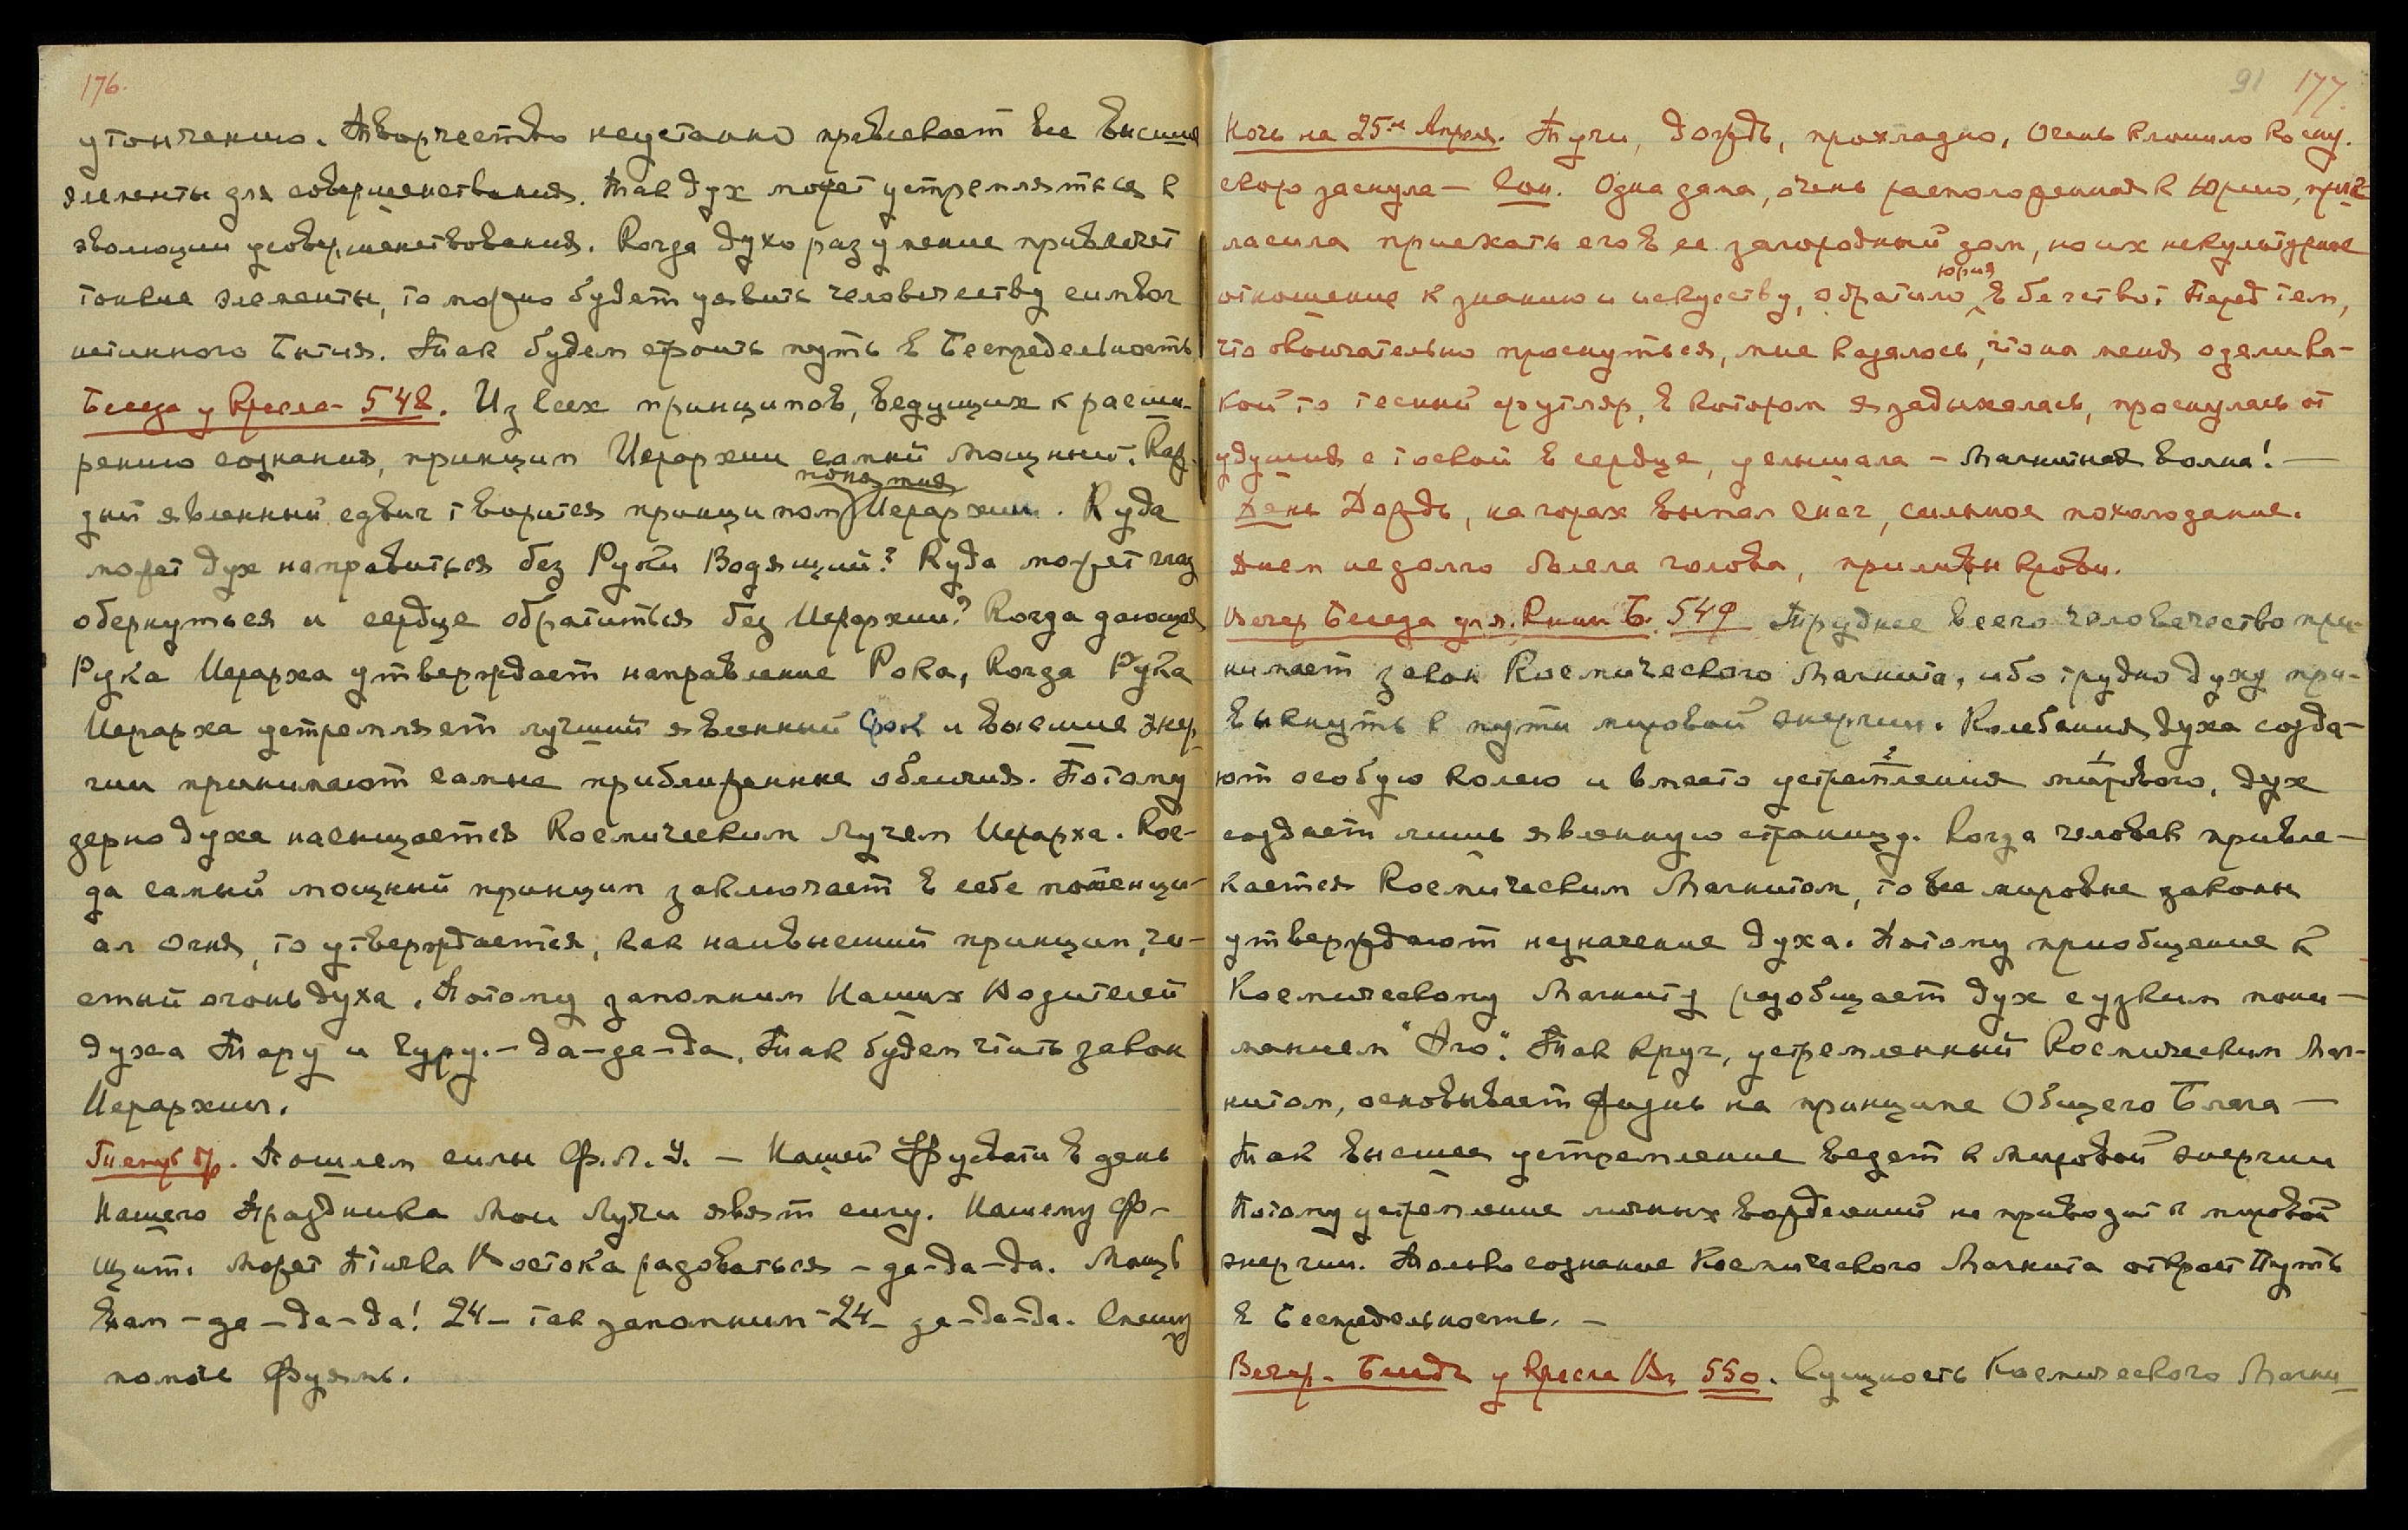 176.
утончению. Творчество неустанно привлекает все высшие
элементы для совершенствования. Так дух может устремляться к
эволюции усовершенствования. Когда духоразумение привлечет
тонкие элементы, то можно будет уявить человечеству символ
истинного Бытия. Так будем строить путь в Беспредельность
Беседа у Кресла – 548. Из всех принципов, ведущих к расши-
рению сознания, принцип Иерархии самый мощный. Каж-
понятия
дый явленный сдвиг творится принципом Иерархии. Куда
может дух направиться без Руки Водящий? Куда может глаз
обернуться и сердце обратиться без Иерархии? Когда дающая
Рука Иерарха утверждает направление Рока, когда Рука
Иерарха устремляет лучший явленный срок и высшие энер-
гии принимают самые приближенные обличия. Потому
зерно духа насыщается Космическим Лучем Иерарха. Ког-
да самый мощный принцип заключает в себе потенци-
ал огня, то утверждается, как наивысший принцип, чи-
стый огонь духа. Потому запомним Наших Водителей
духа Тару и Гуру. – да – да – да. Так будем чтить закон
Иерархии.
Пошлем силы Ф. Л. У. – Нашей в день
Нашего Праздника Мои Лучи явят силу. Нашему Ф –
Щит. Может Птичка Востока радоваться – да – да – да. Мощь
вам – да – да – да! 24 – так запомним – 24 – да – да – да. Спешу
помочь Фуяме.
91 177.
Ночь на 25ое Апреля. Тучи, дождь, прохладно, очень клонило ко сну.
скоро заснула – Сон. Одна дама, очень расположенная к Юрию, приг-
ласила приехать его в ее загородный дом, но их некультурное
Юрия
отношение к знанию и искусству, обратило в бегство. Перед тем,
что окончательно проснуться, мне казалось, что на меня одели ка-
кой то тесный футляр, в котором я задыхалась, проснулась от
удушия с тоской в сердце, услышала – Магнитная волна! –
День Дождь, на горах выпал снег, сильное похолодание.
Днем недолго болела голова, приливы крови.
Вечер Беседа для. Книги Б. 549 Труднее всего человечество при-
нимает закон Космического Магнита, ибо трудно духу при-
выкнуть к пути мировой энергии. Колебания духа созда-
2 1
ют особую колею и вместо устремления мирового, дух
создает лишь явленную страницу. Когда человек привле-
кается Космическим Магнитом, то все мировые законы
утверждают назначение духа. Потому приобщение к
Космическому Магниту разобщает дух с узким пони-
манием "Эго". Так круг, устремленный Космическим Маг-
нитом, основывает жизнь на принципе Общего Блага –
Так высшее устремление ведет к мировой энергии
Потому устремление личных вожделений не приводит к мировой
энергии. Только сознание Космического Магнита откроет Путь
в Беспредельность. –
Вечер. Беседа у Кресла Вл. 550. Сущность Космического Магни-